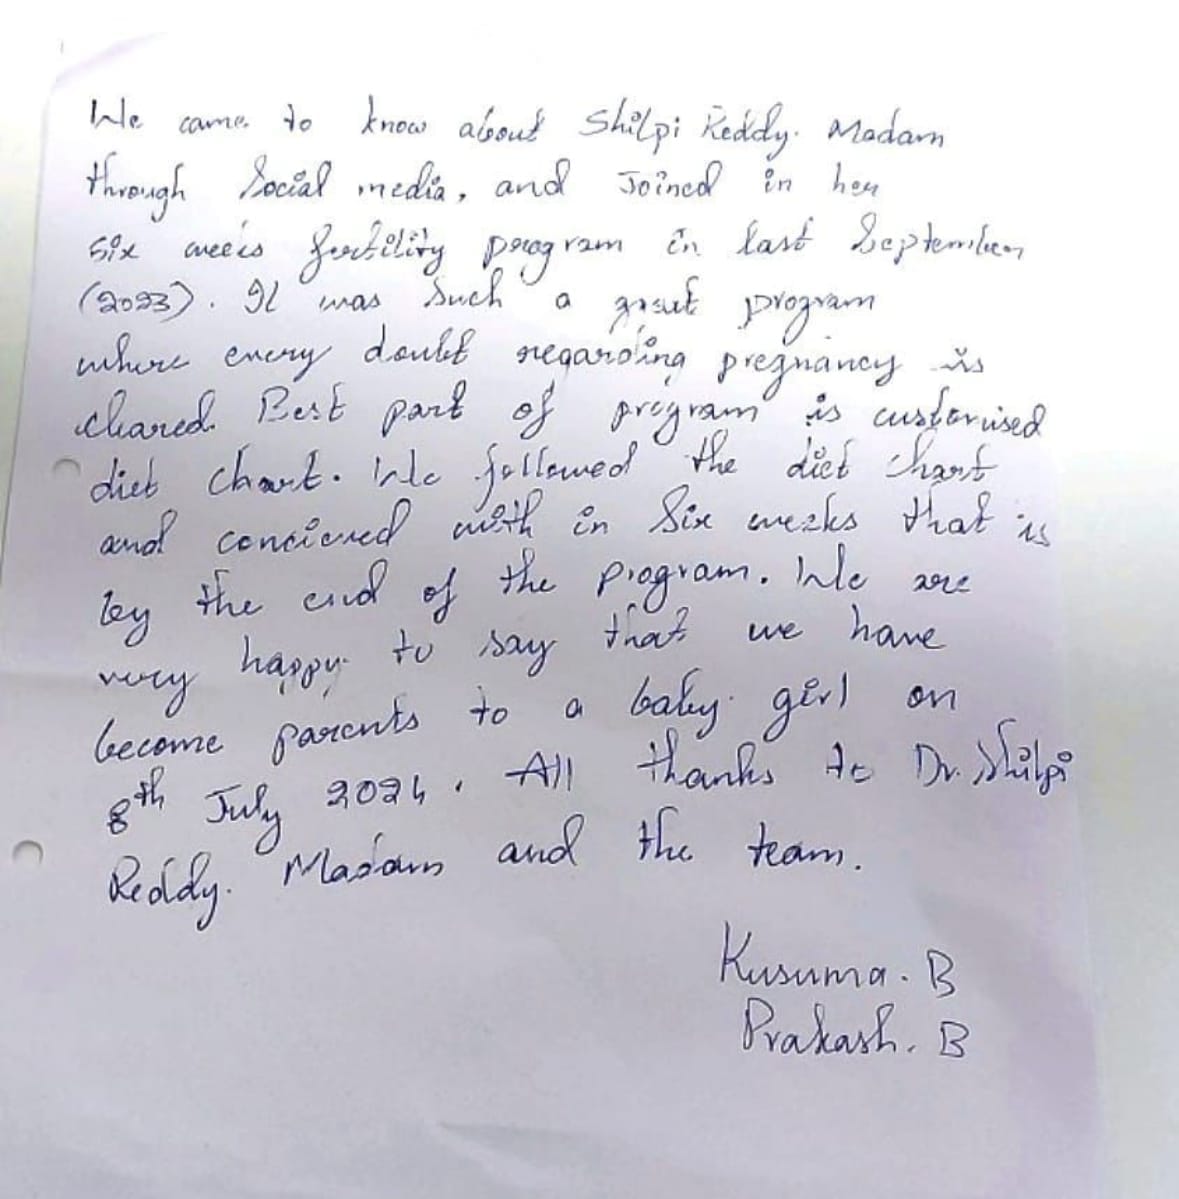 We came to know about Shilpi Reddy. Madam
through Social media, and Joined in her
six weeks fertility program in last September
(2023). It was such a great program
where every doubt regarding pregnancy is
cleared. Best part of program is customised
diet chart. We followed the diet chart
and concieved with in Six weeks that is
by the end of the program. We are
very happy to say that we have
become parents to a baby girl on
8th July 2024. All thanks to Dr. Shilpi
Reddy. Madam and the team.
Kusuma. B
Prakash. B